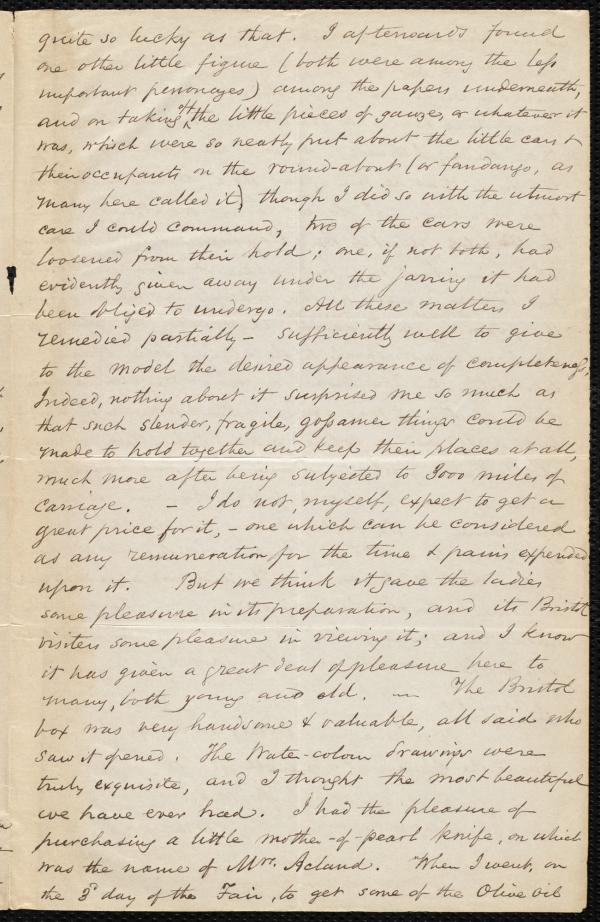 quite so lucky as that. I afterwards found
one other little figure (both were among the less
important personages) among the papers underneath,
and on taking off the little pieces of gauze, or whatever it
was, which were so neatly put about the little cars &
their occupants on the round-about (or fandango, as
many here called it), though I did so with the utmost
care I could command, two of the cars were
loosened from their hold; one, if not both, had
evidently given away under the jarring it had
been obliged to undergo. All these matters I
remedied partially - sufficiently well to give
to the model the desired appearance of completeness,
Indeed, nothing about it surprised me so much as
that such slender, fragile, gossamer things could be
made to hold together and keep their places at all,
much more after being subjected to 3000 miles of
carriage. - I do not, myself, expect to get a
great price for it, - one which can be considered
as any remuneration for the time & pains expended
upon it. But we think it gave the ladies
some pleasure in its preparation, and its Bristol
visiters some pleasure in viewing it; and I know
it has given a great deal of pleasure here to
many, both young and old. — The Bristol
box was very handsome & valuable, all said who
saw it opened. The Water-colour drawings were
truly exquisite, and I thought the most beautiful
we have ever had. I had the pleasure of
purchasing a little mother-of-pearl knife, on which
was the name of Mrs. Acland. When I went, on
the 3d day of the Fair, to get some of the Olive oil